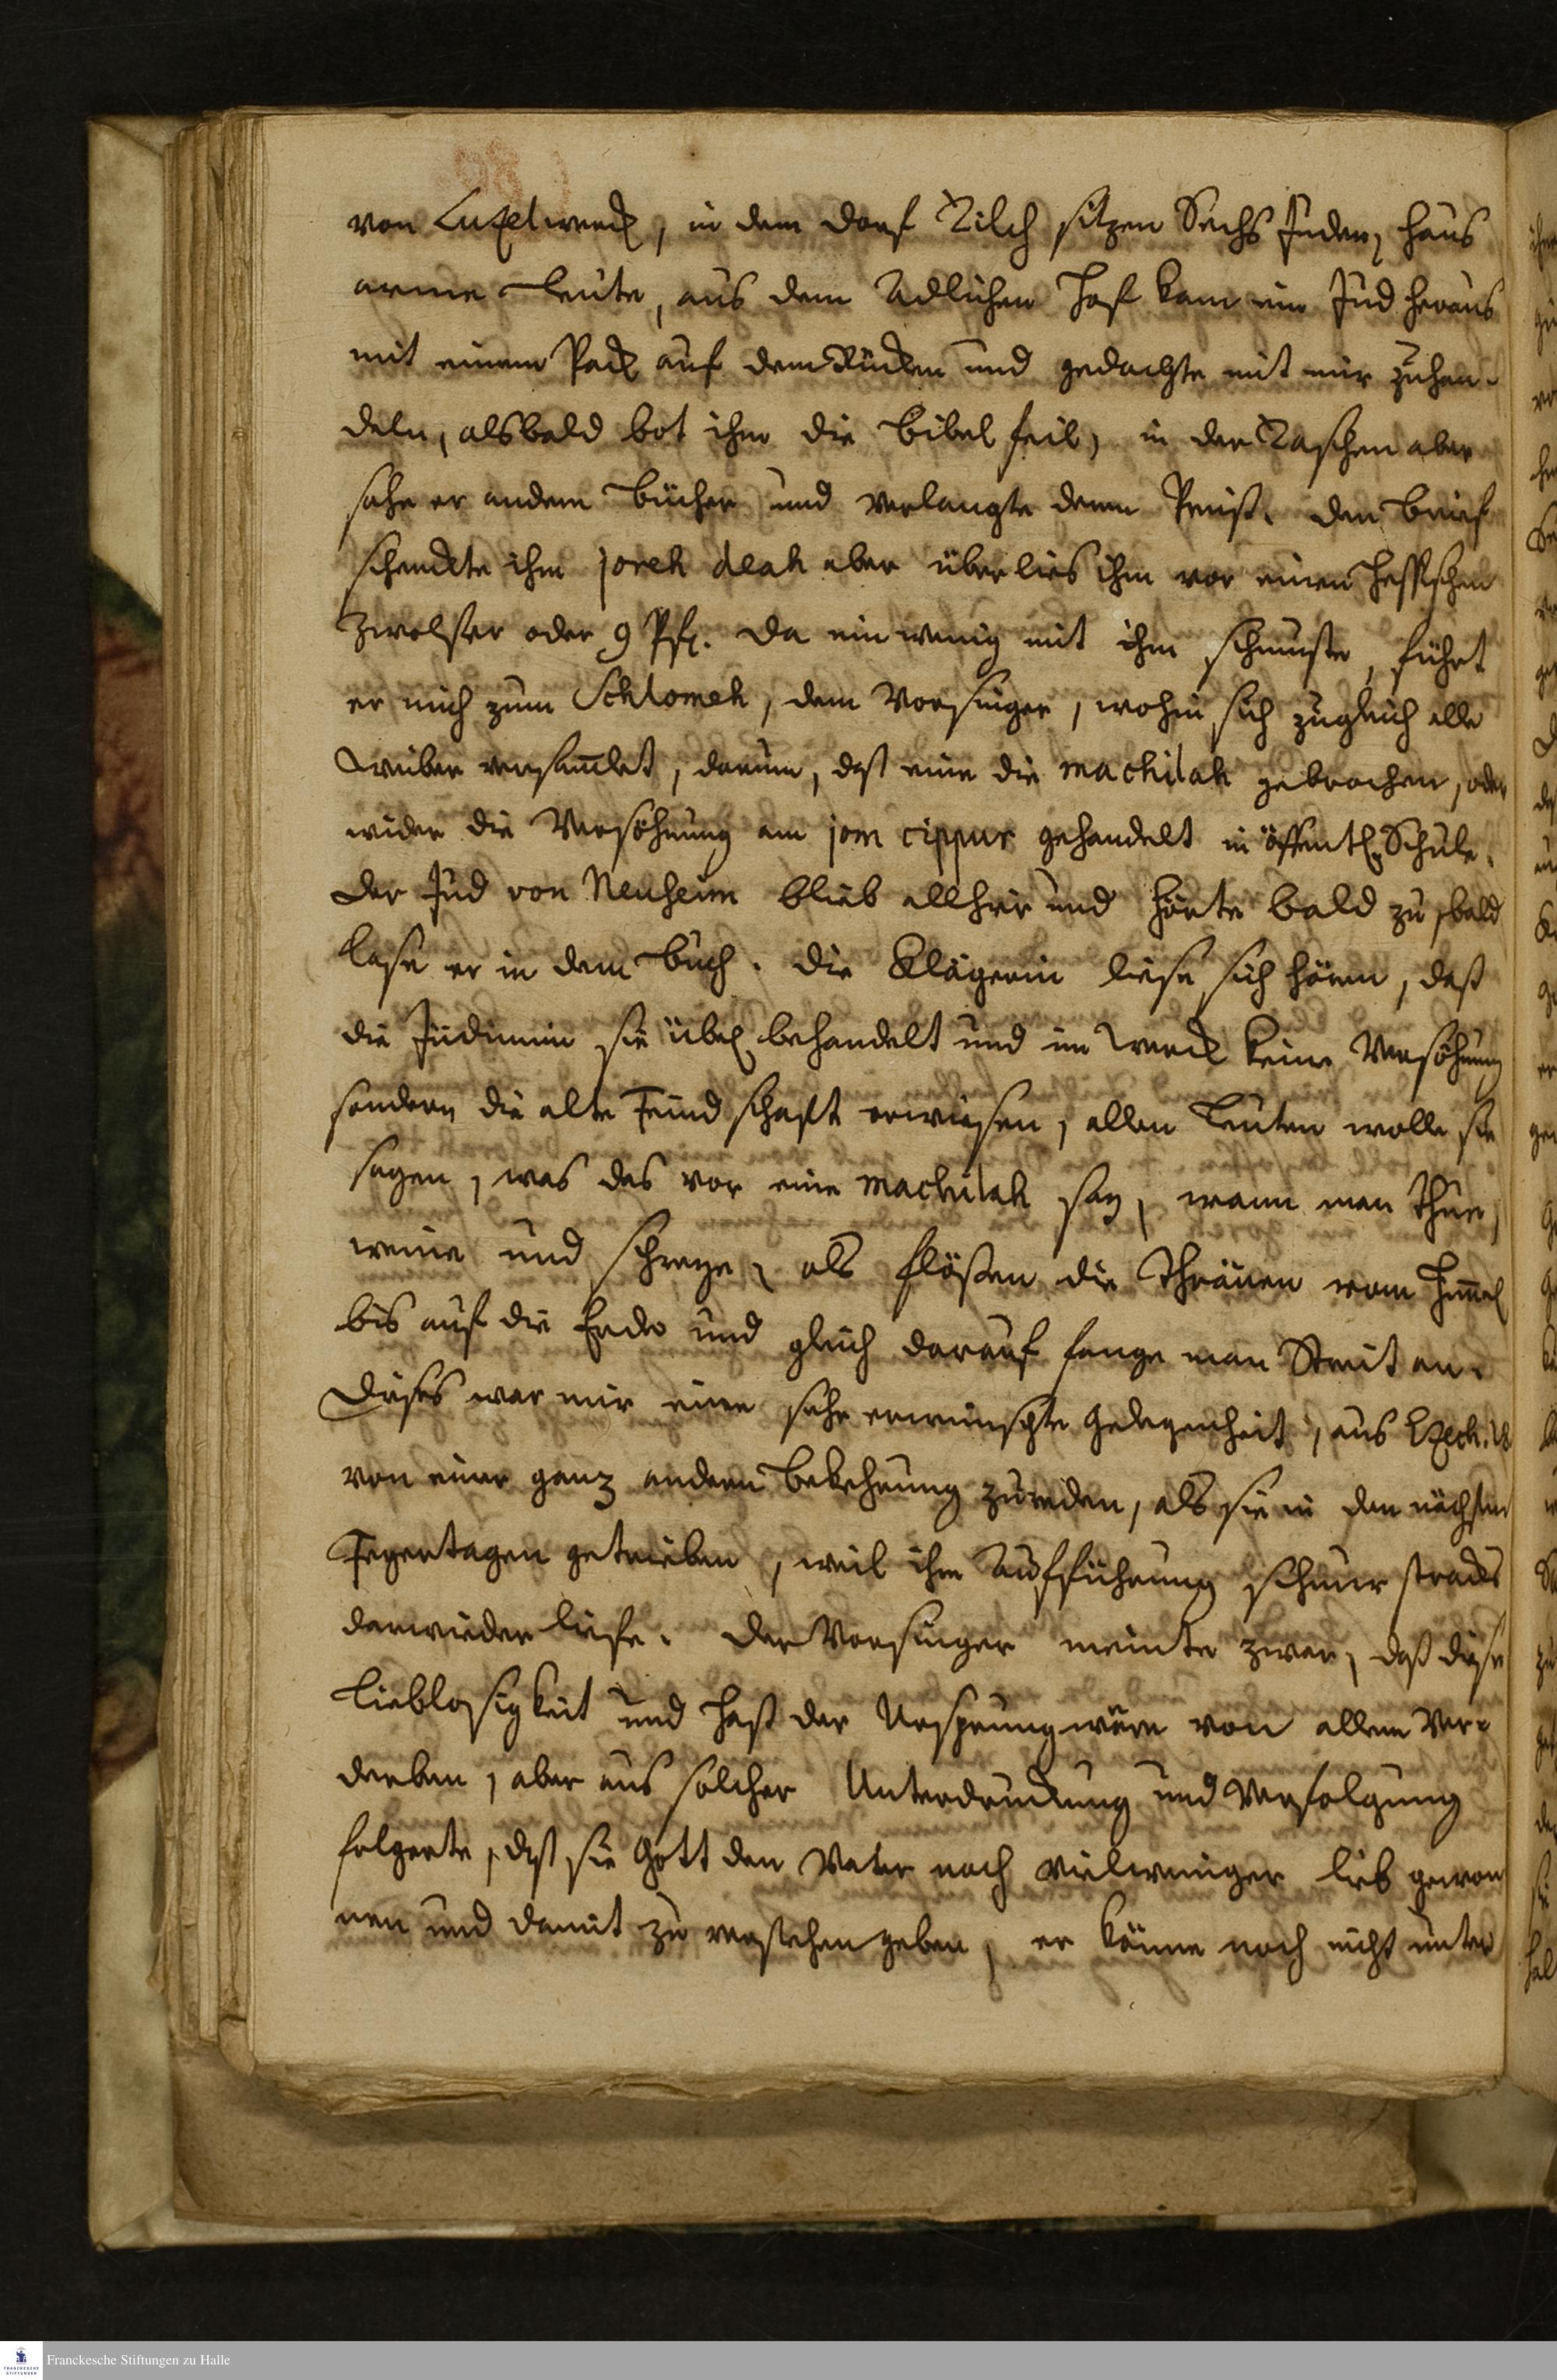 von Lutzelwerck, in dem dorf Zilch sitzen Sechs Juden, haus
arme Leute, aus dem Adlichen Hof kam ein Jud heraus
mit einem Pack auf dem Rücken und gedachte mit mir zuhan-
deln, alsbald bot ihm die Bibel feil, in der Taschen aber
sahe er andere Bücher und verlangte deren Preiß. den Brief
schenckte ihm joreh deah aber überlies ihm vor einen Hessischen
Zwölfer oder 9 Pf. da ein wenig mit ihm schmuste, führt
er mich zum Schlomeh, dem Vorsinger, wohin sich zugleich alle
Weiber versam̄let, darum, daß eine die machilah gebrochen, oder
wider die Versöhnung am jom cippur gehandelt in öffentl. Schule.
der Jud von Neuheim blieb allhier und hörte bald zu, bald
lase er in dem Buch. die Klägerin liese sich hören, daß
die Jüdinnin sie übel behandelt und im Werck keine Versöhnung
sondern die alte Feindschaft erwiesen, allen Leuten wolle sie
sagen, was das vor eine machilah sey, wann man thue,
weine und schreye, als flößen die Thränen vom Him̄el
bis auf die Erde und gleich darauf fange man Streit an.
Dieses war mir eine sehr erwünschte Gelegenheit, aus Ezech. 18
von einer ganz andern Bekehrung zureden, als sie in den nächsten
Feyertagen getrieben, weil ihre Aufführung schnur stracks
darwieder liefe. der Vorsinger meinte zwar, daß diese
Lieblosigkeit und Haß der Ursprung wäre von allem Ver-
derben, aber aus solcher Unterdruckung und Verfolgung
folgerte, daß sie Gott den Vater noch vielweniger lieb gewon
nen und damit zu verstehen geben, er könne noch nicht unter
Franckesche Stiftungen zu Halle